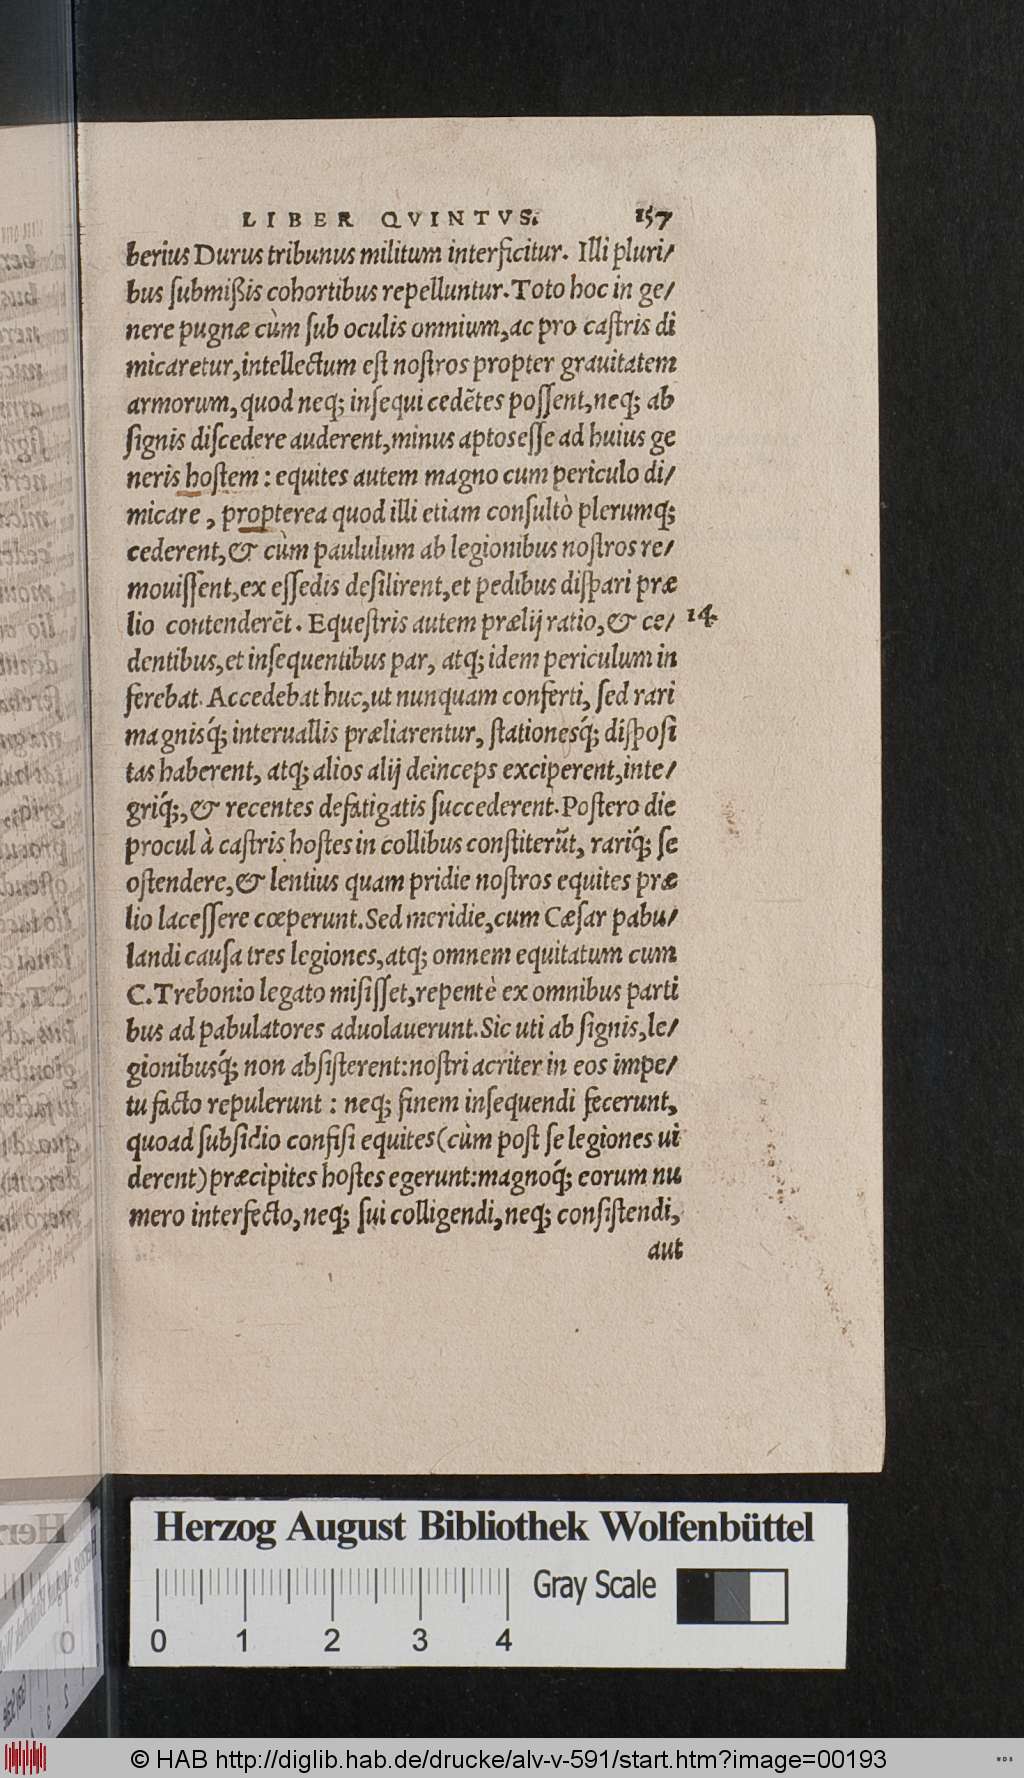 LIBER QVINTVS. 157
berius Durus tribunus militum interficitur. Illi pluri/
bus ſubmißis cohortibus repelluntur. Toto hoc in ge/
nere pugnæ cùm ſub oculis omnium, ac pro caſtris di
micaretur, intellectum eſt noſtros propter grauitatem
armorum, quod neq; inſequi cedẽtes poſſent, neq; ab
ſignis diſcedere auderent, minus aptos eſſe ad huius ge
neris hoſtem : equites autem magno cum periculo di/
micare , propterea quod illi etiam conſultò plerumq;
cederent, & cùm paululum ab legionibus noſtros re/
mouiſſent, ex eſſedis deſilirent, et pedibus diſpari præ
lio contenderẽt. Equeſtris autem prælij ratio, & ce/ 14
dentibus, et inſequentibus par, atq; idem periculum in
ferebat. Accedebat huc, ut nunquam conferti, ſed rari
magnisq́; interuallis præliarentur, ſtationesq́; diſpoſi
tas haberent, atq; alios alij deinceps exciperent, inte/
griq́;, & recentes defatigatis ſuccederent. Poſtero die
procul à caſtris hoſtes in collibus conſtiterũt, rariq́; ſe
oſtendere, & lentius quam pridie noſtros equites præ
lio laceſſere cœperunt. Sed meridie, cum Cæſar pabu/
landi cauſa tres legiones, atq; omnem equitatum cum
C. Trebonio legato miſiſſet, repentè ex omnibus parti
bus ad pabulatores aduolauerunt. Sic uti ab ſignis, le/
gionibusq́; non abſiſterent: noſtri acriter in eos impe/
tu facto repulerunt : neq; finem inſequendi fecerunt,
quoad ſubſidio confiſi equites (cùm poſt ſe legiones ui
derent) præcipites hoſtes egerunt: magnoq́; eorum nu
mero interfecto, neq; ſui colligendi, neq; conſiſtendi,
aut
Herzog August Bibliothek Wolfenbüttel
Gray Scale
0 1 2 3 4
© HAB http://diglib.hab.de/drucke/alv-v-591/start.htm?image=00193